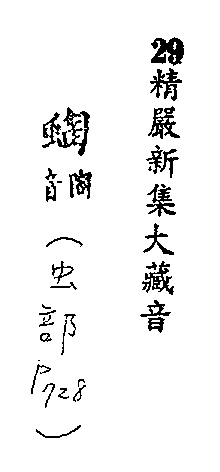 29精嚴新集大藏音
音
(虫部P728)